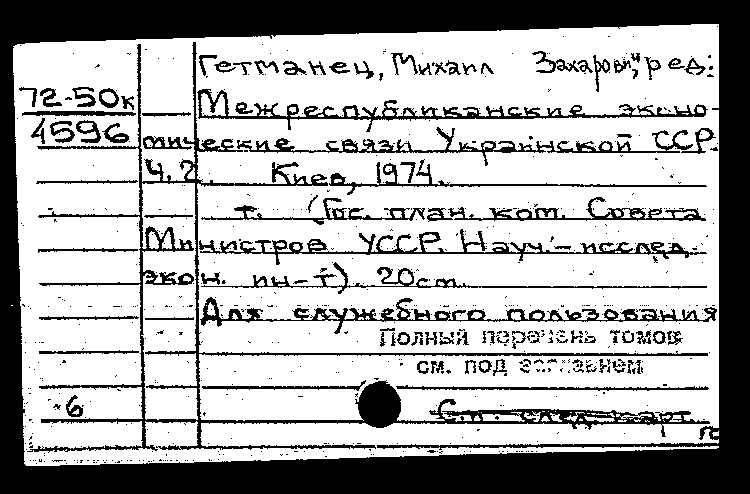 Гетманец, Михаил Захарович, ред:
72-50к
4596
Межреспубликанские эконо-
мические связи Украинской ССР.
Ч. 2. Киев, 1974.
т. (Гос. план. ком. Совета
Министров УССР. Науч.-исслед.
экон. ин-т). 20см.
Для служебного пользования
Полный перечень томов
см. под заглавием
6
С.п. след. карт.